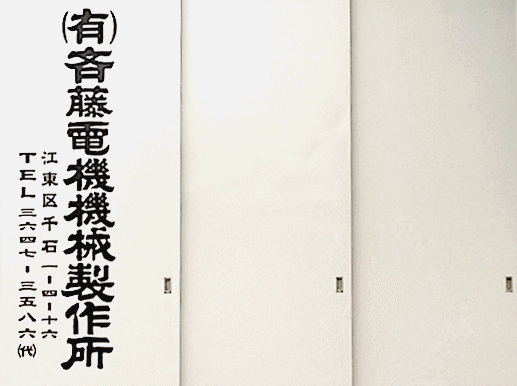 (有)斉藤電機機械製作所
江東区千石一-四-十六
TEL三六四七-三五八六(代)